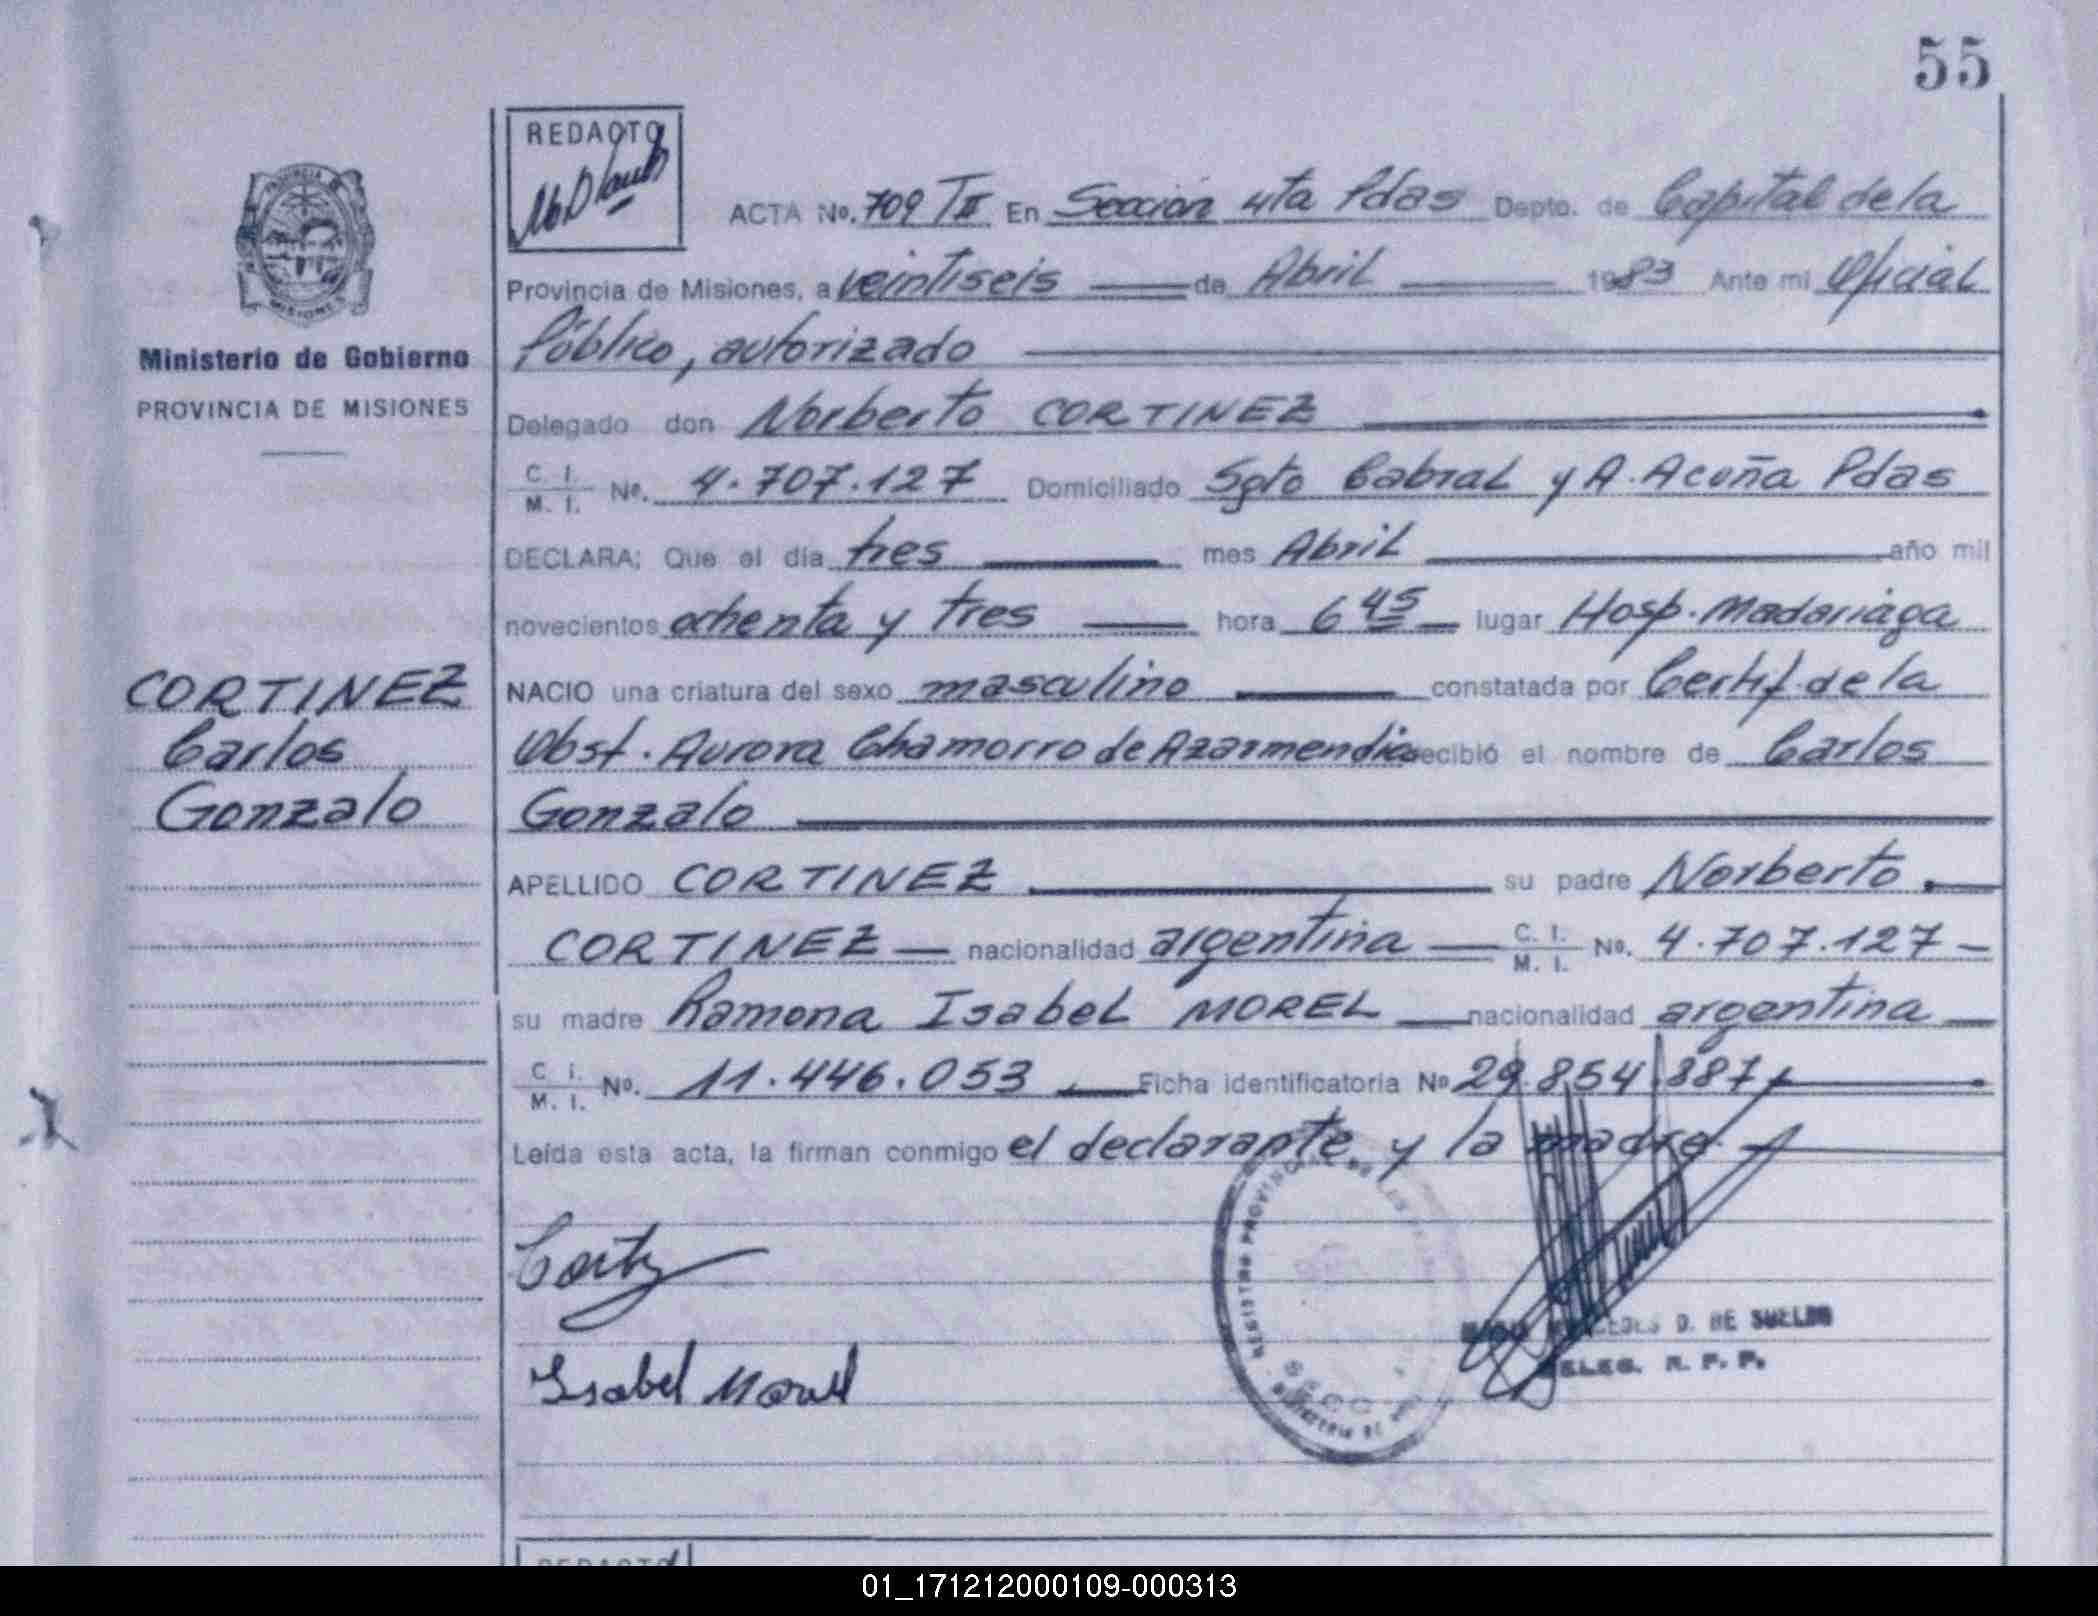 55
REDACTO
ACTA No. 709 TII En Sección 4ta Pdas Depto. de Capital de la
Provincia de Misiones, a veintiseis de Abril 1983 Ante mi Oficial
Público, autorizado
Ministerio de Gobierno
PROVINCIA DE MISIONES
Delegado don Norberto CORTINEZ
C. I. M. I. No. 4.707.127 Domiciliado Sgto Cabral y A. Acuña Pdas
DECLARA; Que el día tres mes Abril año mil
novecientos ochenta y tres hora 6 45 lugar Hosp. Madariaga
CORTINEZ
Carlos
Gonzalo
NACIO una criatura del sexo masculino constatada por Certif. de la
Obst. Aurora Chamorro de Azarmendia recibió el nombre de Carlos
Gonzalo
APELLIDO CORTINEZ su padre Norberto
CORTINEZ nacionalidad argentina C. I. M. I. No. 4.707.127
su madre Ramona Isabel MOREL nacionalidad argentina
C. I. M. I. No. 11.446.053 Ficha identificatoria No 29.854.387
Leída esta acta, la firman conmigo el declarante y la madre
Isabel Morel
REGISTRO PROVINCIAL DE LAS
SECC
D. DE SUELDO
DELEG. R. P. P.
REDACTO
01_171212000109-000313